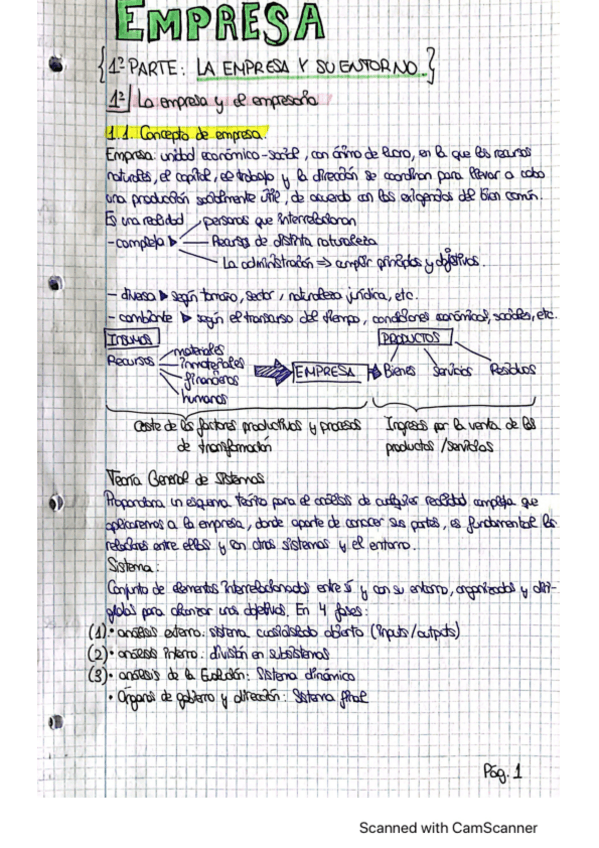 EMPRESA
1ª PARTE: LA EMPRESA Y SU ENTORNO
1º La empresa y el empresario
1.1. Concepto de empresa.
Empresa: unidad económico-social, con ánimo de lucro, en la que los recursos
naturales, el capital, el trabajo y la dirección se coordinan para llevar a cabo
una producción socialmente útil, de acuerdo con las exigencias del bien común.
Es una realidad
personas que interrelacionan
- compleja
Recursos de distinta naturaleza
La administración ⇒ cumplir principios y objetivos.
- diversa ▶ según tamaño, sector, naturaleza jurídica, etc.
- cambiante ▶ según el transcurso del tiempo, condiciones económicas, sociales, etc.
INSUMOS
PRODUCTOS
Recursos
materiales
inmateriales
financieros
humanos
EMPRESA
Bienes Servicios Residuos
Coste de los factores productivos y procesos
de transformación
Ingresos por la venta de los
productos/servicios
Teoría General de Sistemas
Proporciona un esquema teórico para el análisis de cualquier realidad compleja que
aplicaremos a la empresa, donde aparte de conocer sus partes, es fundamental las
relaciones entre ellas y con otros sistemas y el entorno.
Sistema:
Conjunto de elementos interrelacionados entre sí y con su entorno, organizados y diri-
gidos para alcanzar unos objetivos. En 4 fases:
(1) • análisis externo: sistema considerado abierto (inputs/outputs)
(2) • análisis interno: división en subsistemas
(3) • análisis de la Evolución: Sistema dinámico
• Órganos de gobierno y dirección: Sistema final
Pág. 1
Scanned with CamScanner